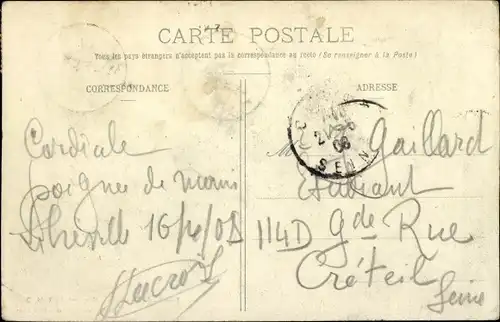 CARTE POSTALE
Tous les pays étrangers n'acceptent pas la correspondance au recto (Se renseigner à la Poste)
CORRESPONDANCE
ADRESSE
Cordiale
poignée de mains
Lacroix
Gaillard
Etudiant
114D Gde Rue
Créteil
Seine